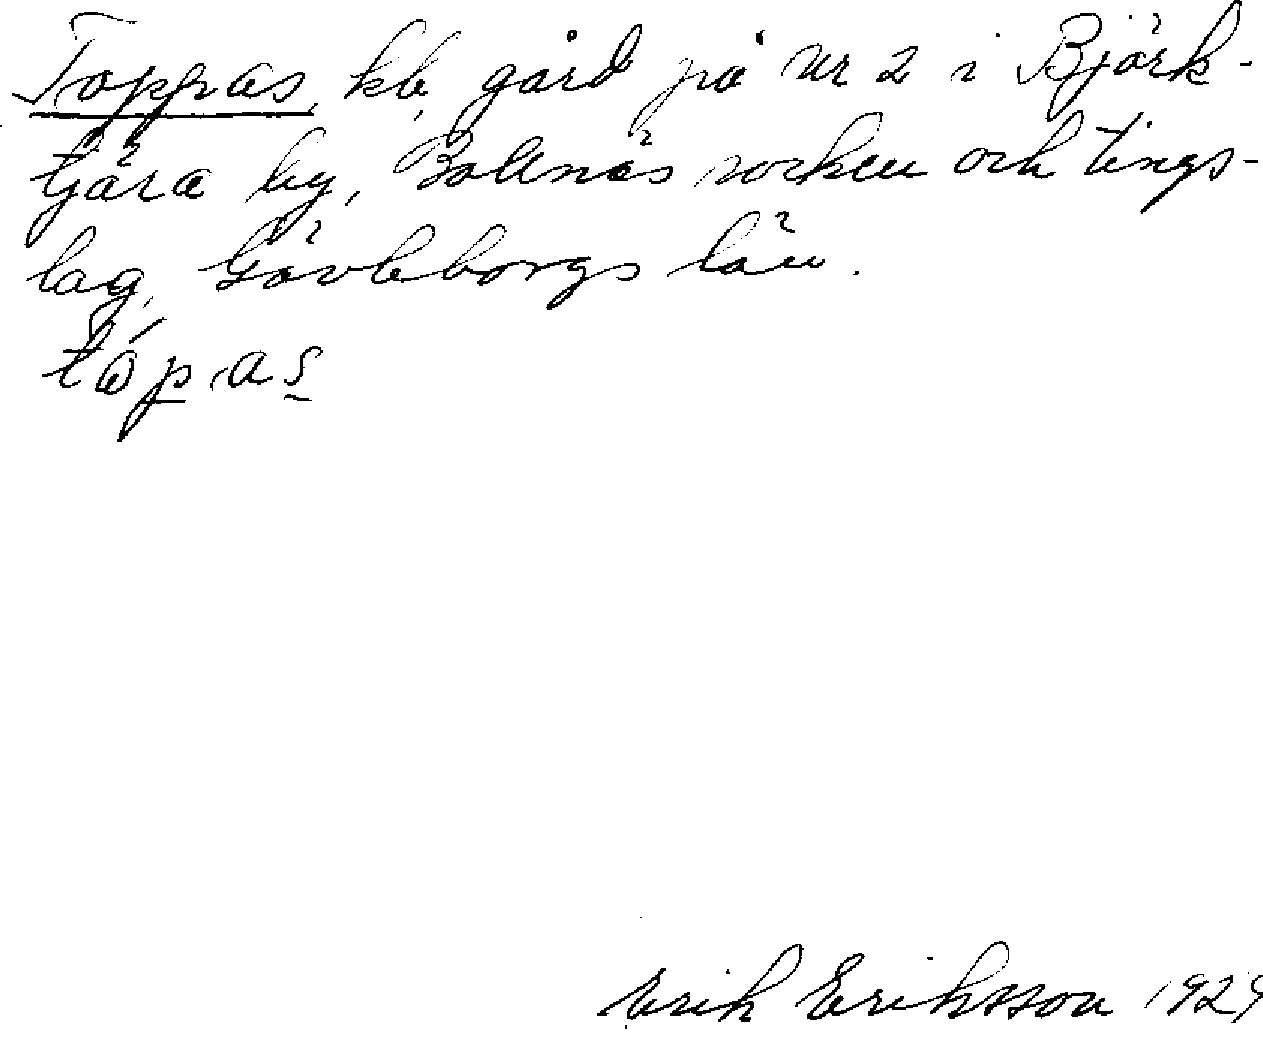 Toppas, kb, gård på Nr 2 i Björk-
tjära by, Bollnäs socken och tings-
lag, Gävleborgs län.
tópas
Erik Eriksson 1929